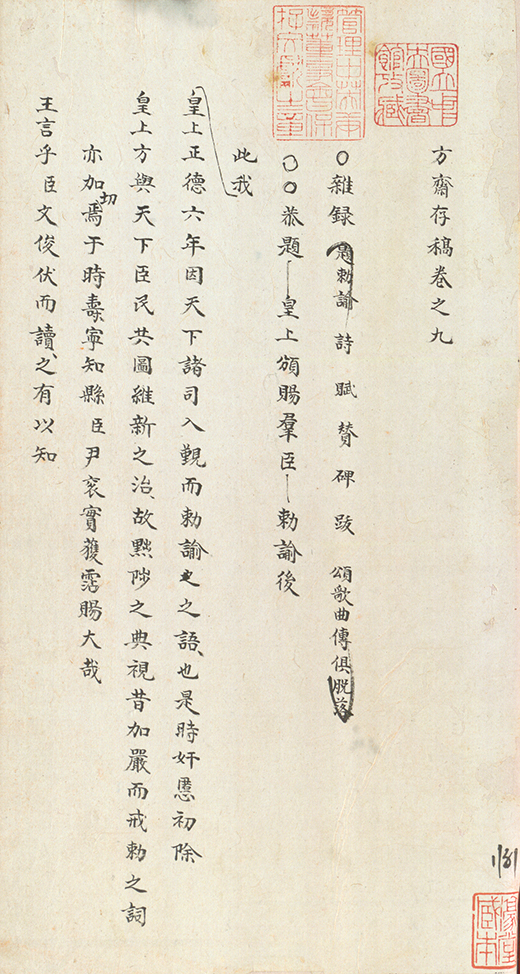 方齋存稿卷之九
雜録 題勅諭 詩 賦 贊 碑 跋 頌歌曲傳俱脫落
恭題皇上頒賜羣臣勅諭後
此我
皇上正德六年因天下諸司入覲而勅諭之之語也是時奸慝初除
皇上方與天下臣民共圖維新之治故黜陟之典視昔加嚴而戒勅之詞
亦加切焉于時壽寧知縣臣尹袞實獲霑賜大哉
王言乎臣文俊伏而讀之有以知
國立中央圖書館攷藏
管理中英庚款董事會保存文獻之章